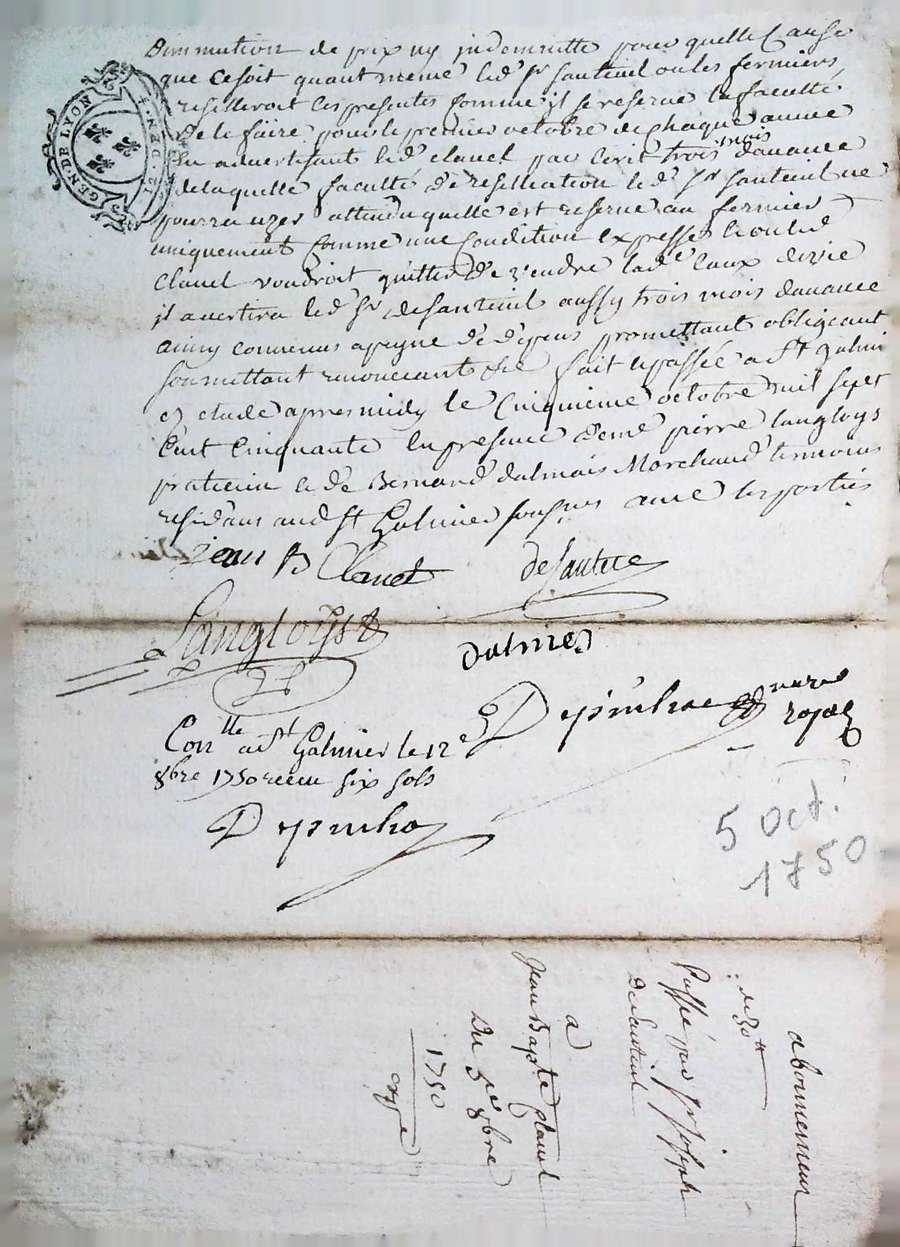 Diminution de prix ny jndemnitté pour quelle Cause
que Cesoit quant meme led sr Santeuil ou les fermiers
resilleroit Les presentes Comme jl se reserve la faculté
de le faire pour le premier octobre de Chaque annee
En advertissant led clauel par Ecrit trois mois dauance
delaquelle faculté de resilliation led sr Santeuil ne
pourra uzer attendu quelle est reservé au fermier
uniquement Comme une Condition Expresse Et ou led
Clauel voudroit quitter de vendre lad Eaux devie
jl avertira led sr desanteuil aussy trois mois dauance
ainsy convenus apeyne de depens promettant obligeant
soumettant renonceant &c fait Et passée a St Galmi
Et etude apres midy le Cinquieme octobre mil sept
Cent Cinquante En presence de me pierre Langloys
praticien Et de Bernard dalmais Marchand temoins
residans aud St Galmier sousnes avec les parties
jean B Clauel desanteue
Langloyst
Dalmes
Depinhac
nore royal
Conlle a St Galmier le 12e
8bre 1750 receu six sols
Depinhac
5 Oct.
1750
GEN. DE LYON
abonnemeur
de 30tt
Passé par sr joseph
Desanteuil
a
Jean Bapte Clauel
Du 5e 8bre
1750